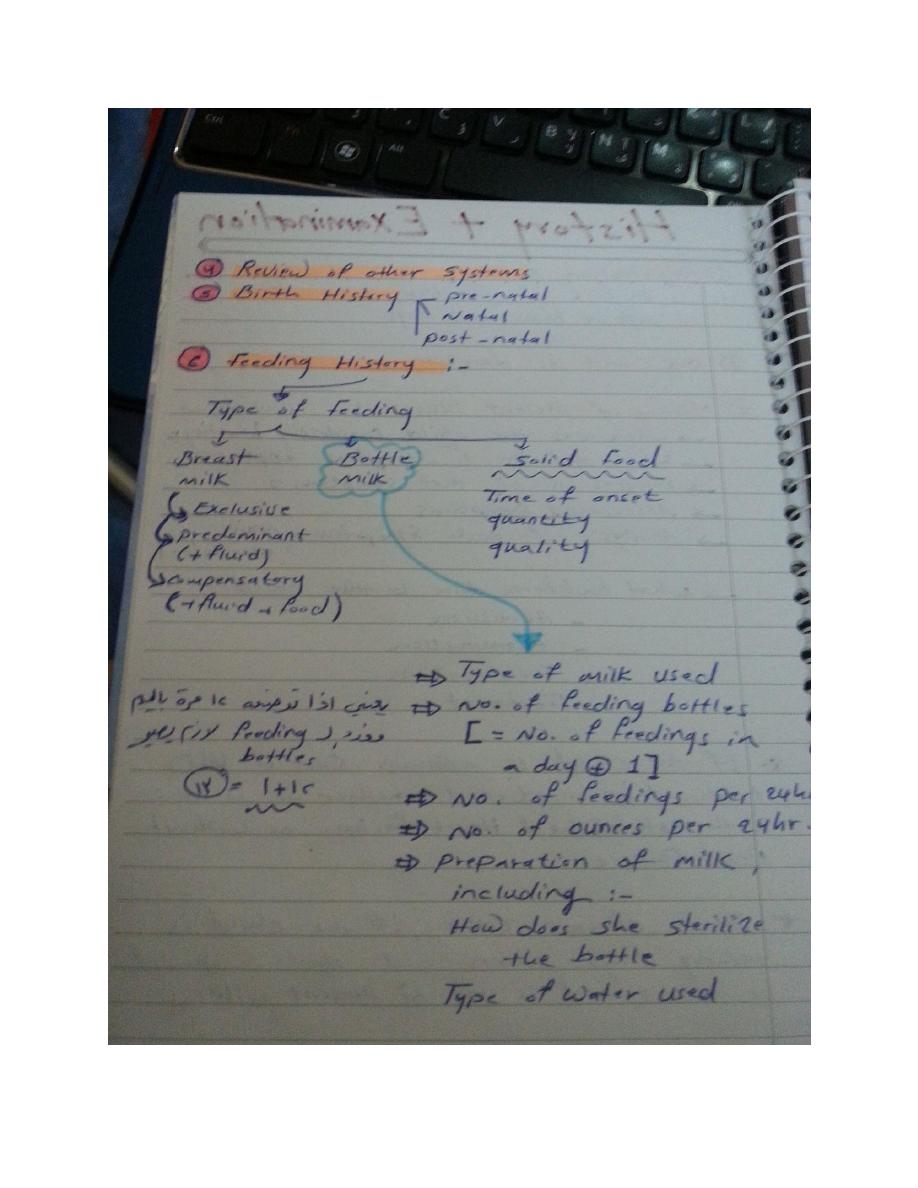 History + Examination
4 Review of other systems
5 Birth History
pre-natal
Natal
post-natal
6 Feeding History :-
Type of feeding
Breast milk
Exclusive
predominant
(+ fluid)
compensatory
(+ fluid + food)
Bottle
milk
Solid food
Time of onset
quantity
quality
⇒ Type of milk used
⇒ No. of feeding bottles
[ = No. of feedings in
a day ⊕ 1]
يعني اذا ترضعه مرة باليوم
feeding لازم يصير
bottles
= 1+
⇒ No. of feedings per 24h
⇒ No. of ounces per 24hr.
⇒ preparation of milk ;
including :-
How does she sterilize
the bottle
Type of water used